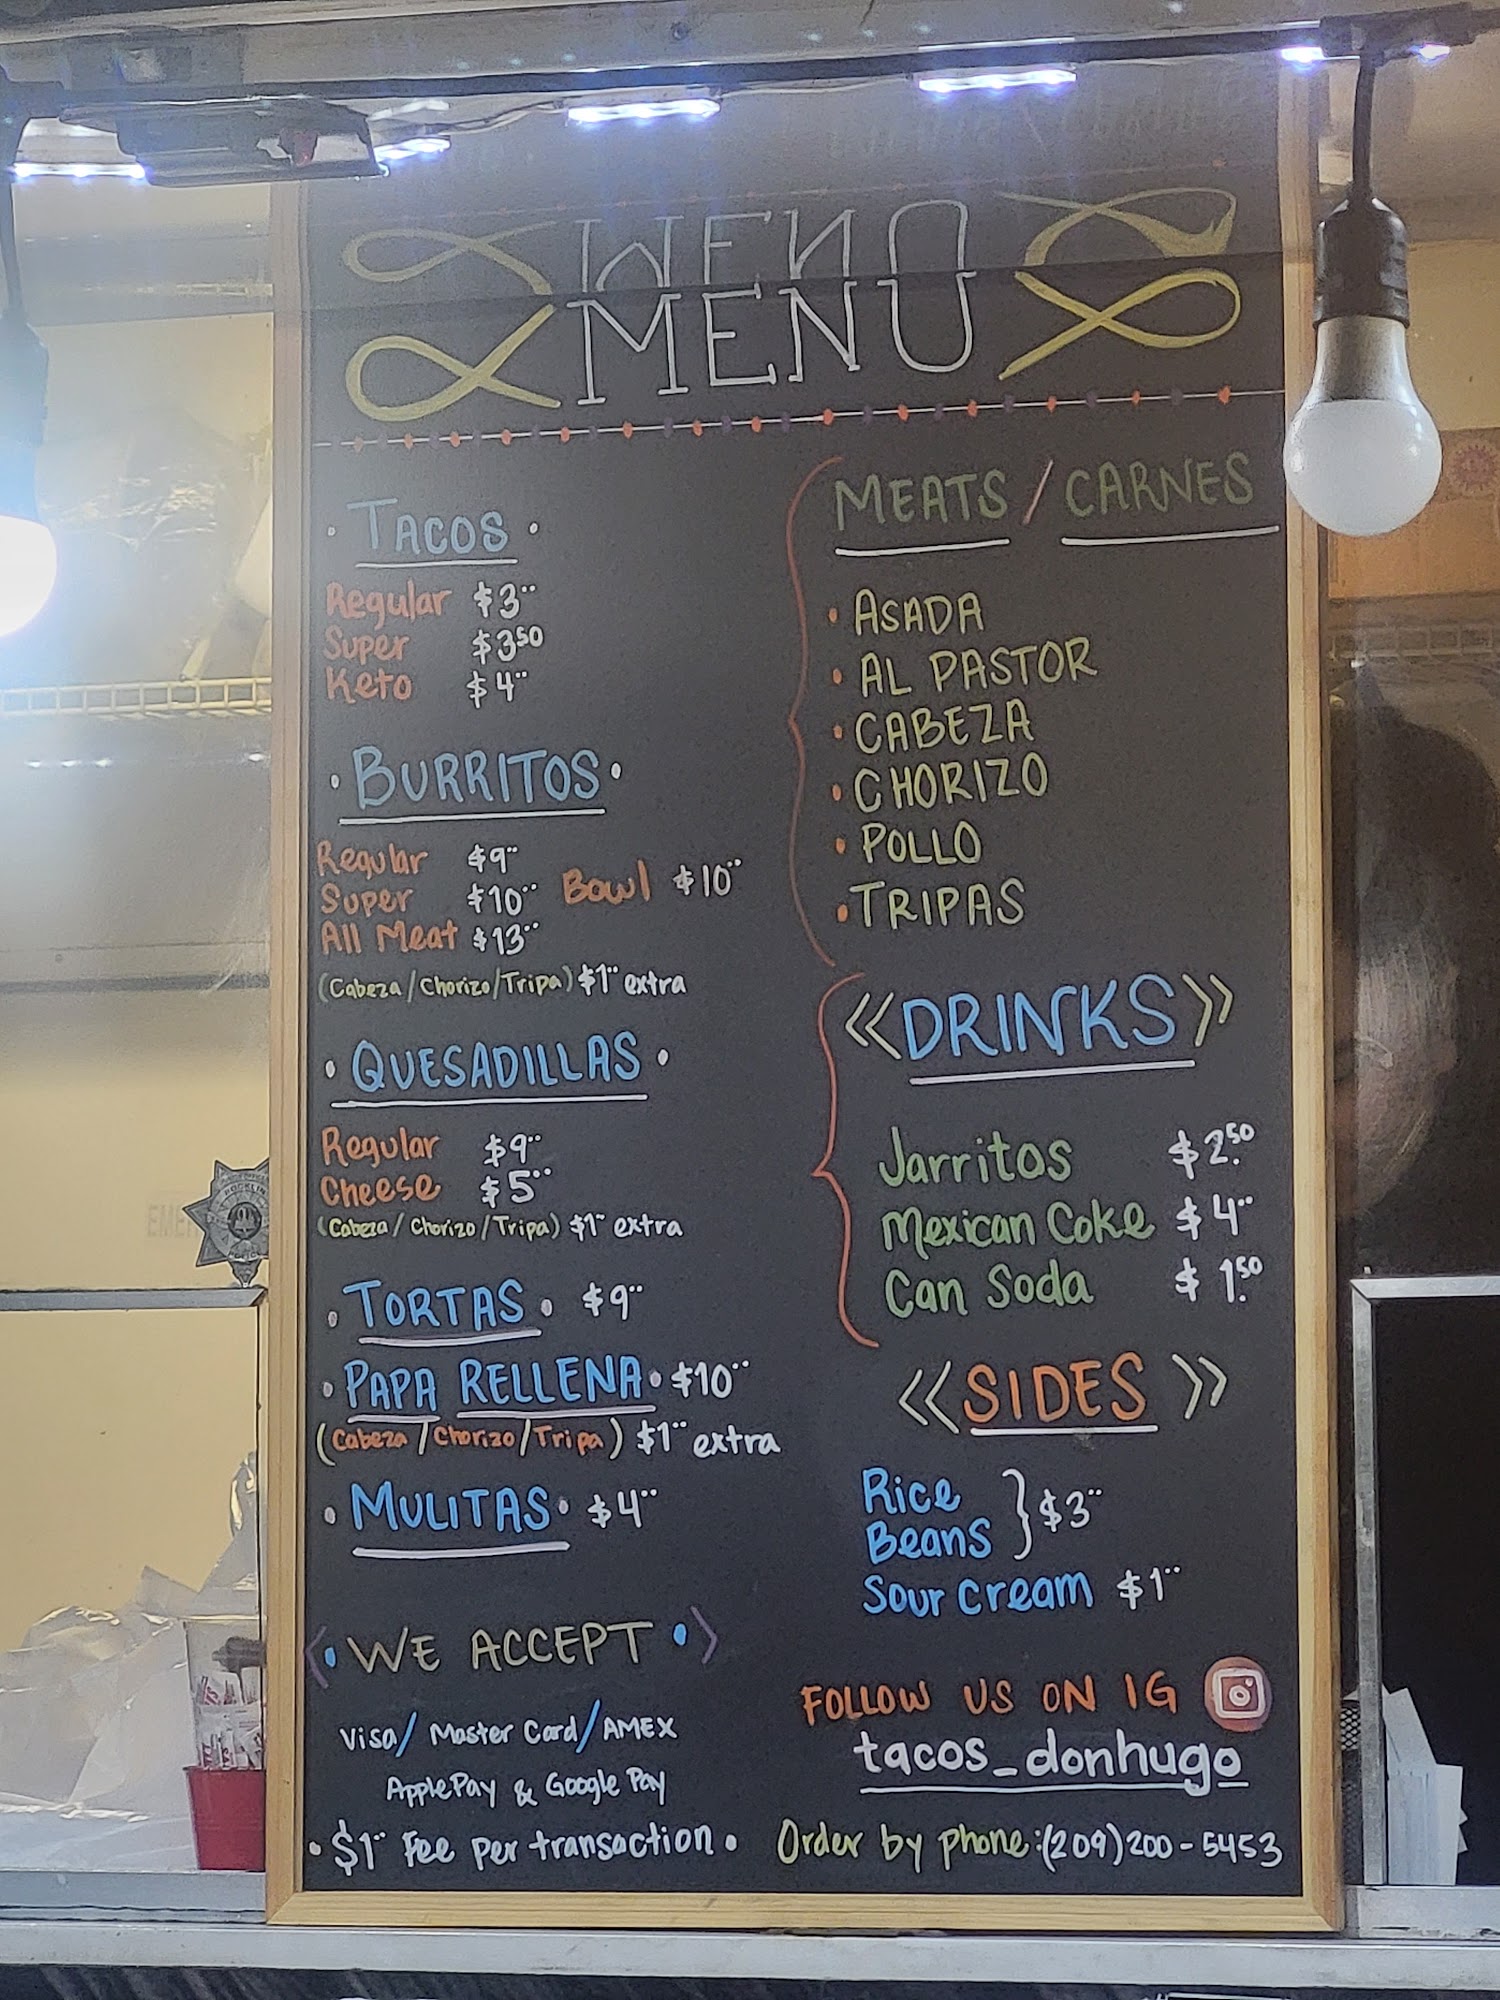 MENU
· TACOS ·
Regular $3
Super $3.50
Keto $4
· BURRITOS ·
Regular $9
Super $10
All Meat $13
Bowl $10
(Cabeza/Chorizo/Tripa) $1 extra
· QUESADILLAS ·
Regular $9
Cheese $5
(Cabeza/Chorizo/Tripa) $1 extra
· TORTAS · $9
· PAPA RELLENA · $10
(Cabeza/Chorizo/Tripa) $1 extra
· MULITAS · $4
· WE ACCEPT ·
Visa/Master Card/AMEX
Apple Pay & Google Pay
· $1 Fee per transaction ·
MEATS / CARNES
· ASADA
· AL PASTOR
· CABEZA
· CHORIZO
· POLLO
· TRIPAS
<<DRINKS>>
Jarritos $2.50
Mexican Coke $4
Can Soda $1.50
<<SIDES>>
Rice
Beans } $3
Sour Cream $1
FOLLOW US ON IG
tacos_donhugo
Order by phone:(209)200-5453
ROCKLIN